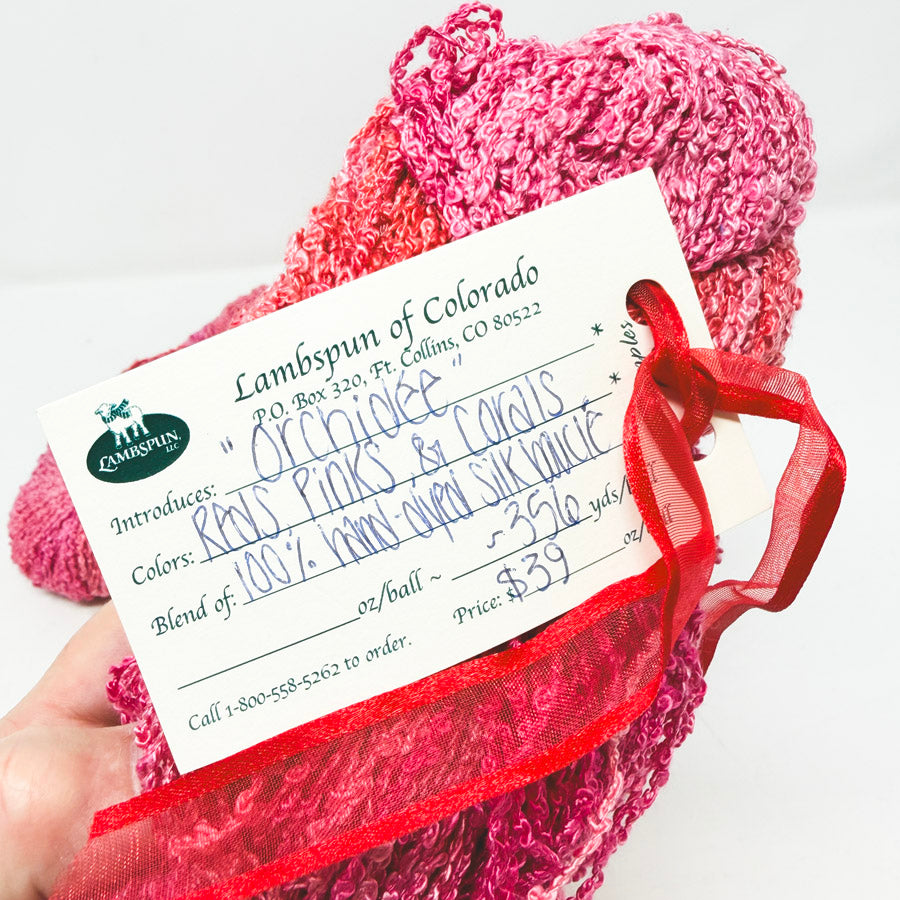 Lambspun of Colorado
P.O. Box 320, Ft. Collins, CO 80522
LAMBSPUN, LLC
Introduces: "Orchidée" *
Colors: Reds, Pinks, & Corals *
Blend of: 100% hand-dyed silk
oz/ball ~ ~356 yds/
Price: $39 oz/
Call 1-800-558-5262 to order.